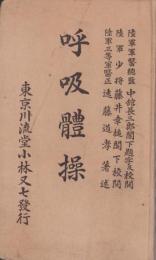 陸軍軍醫總監 中館長三郎閣下題字及校閱
陸軍少將 藤井幸槌閣下校閱
陸軍三等軍醫正 遠藤道孝著述
呼吸體操
東京川流堂小林又七發行